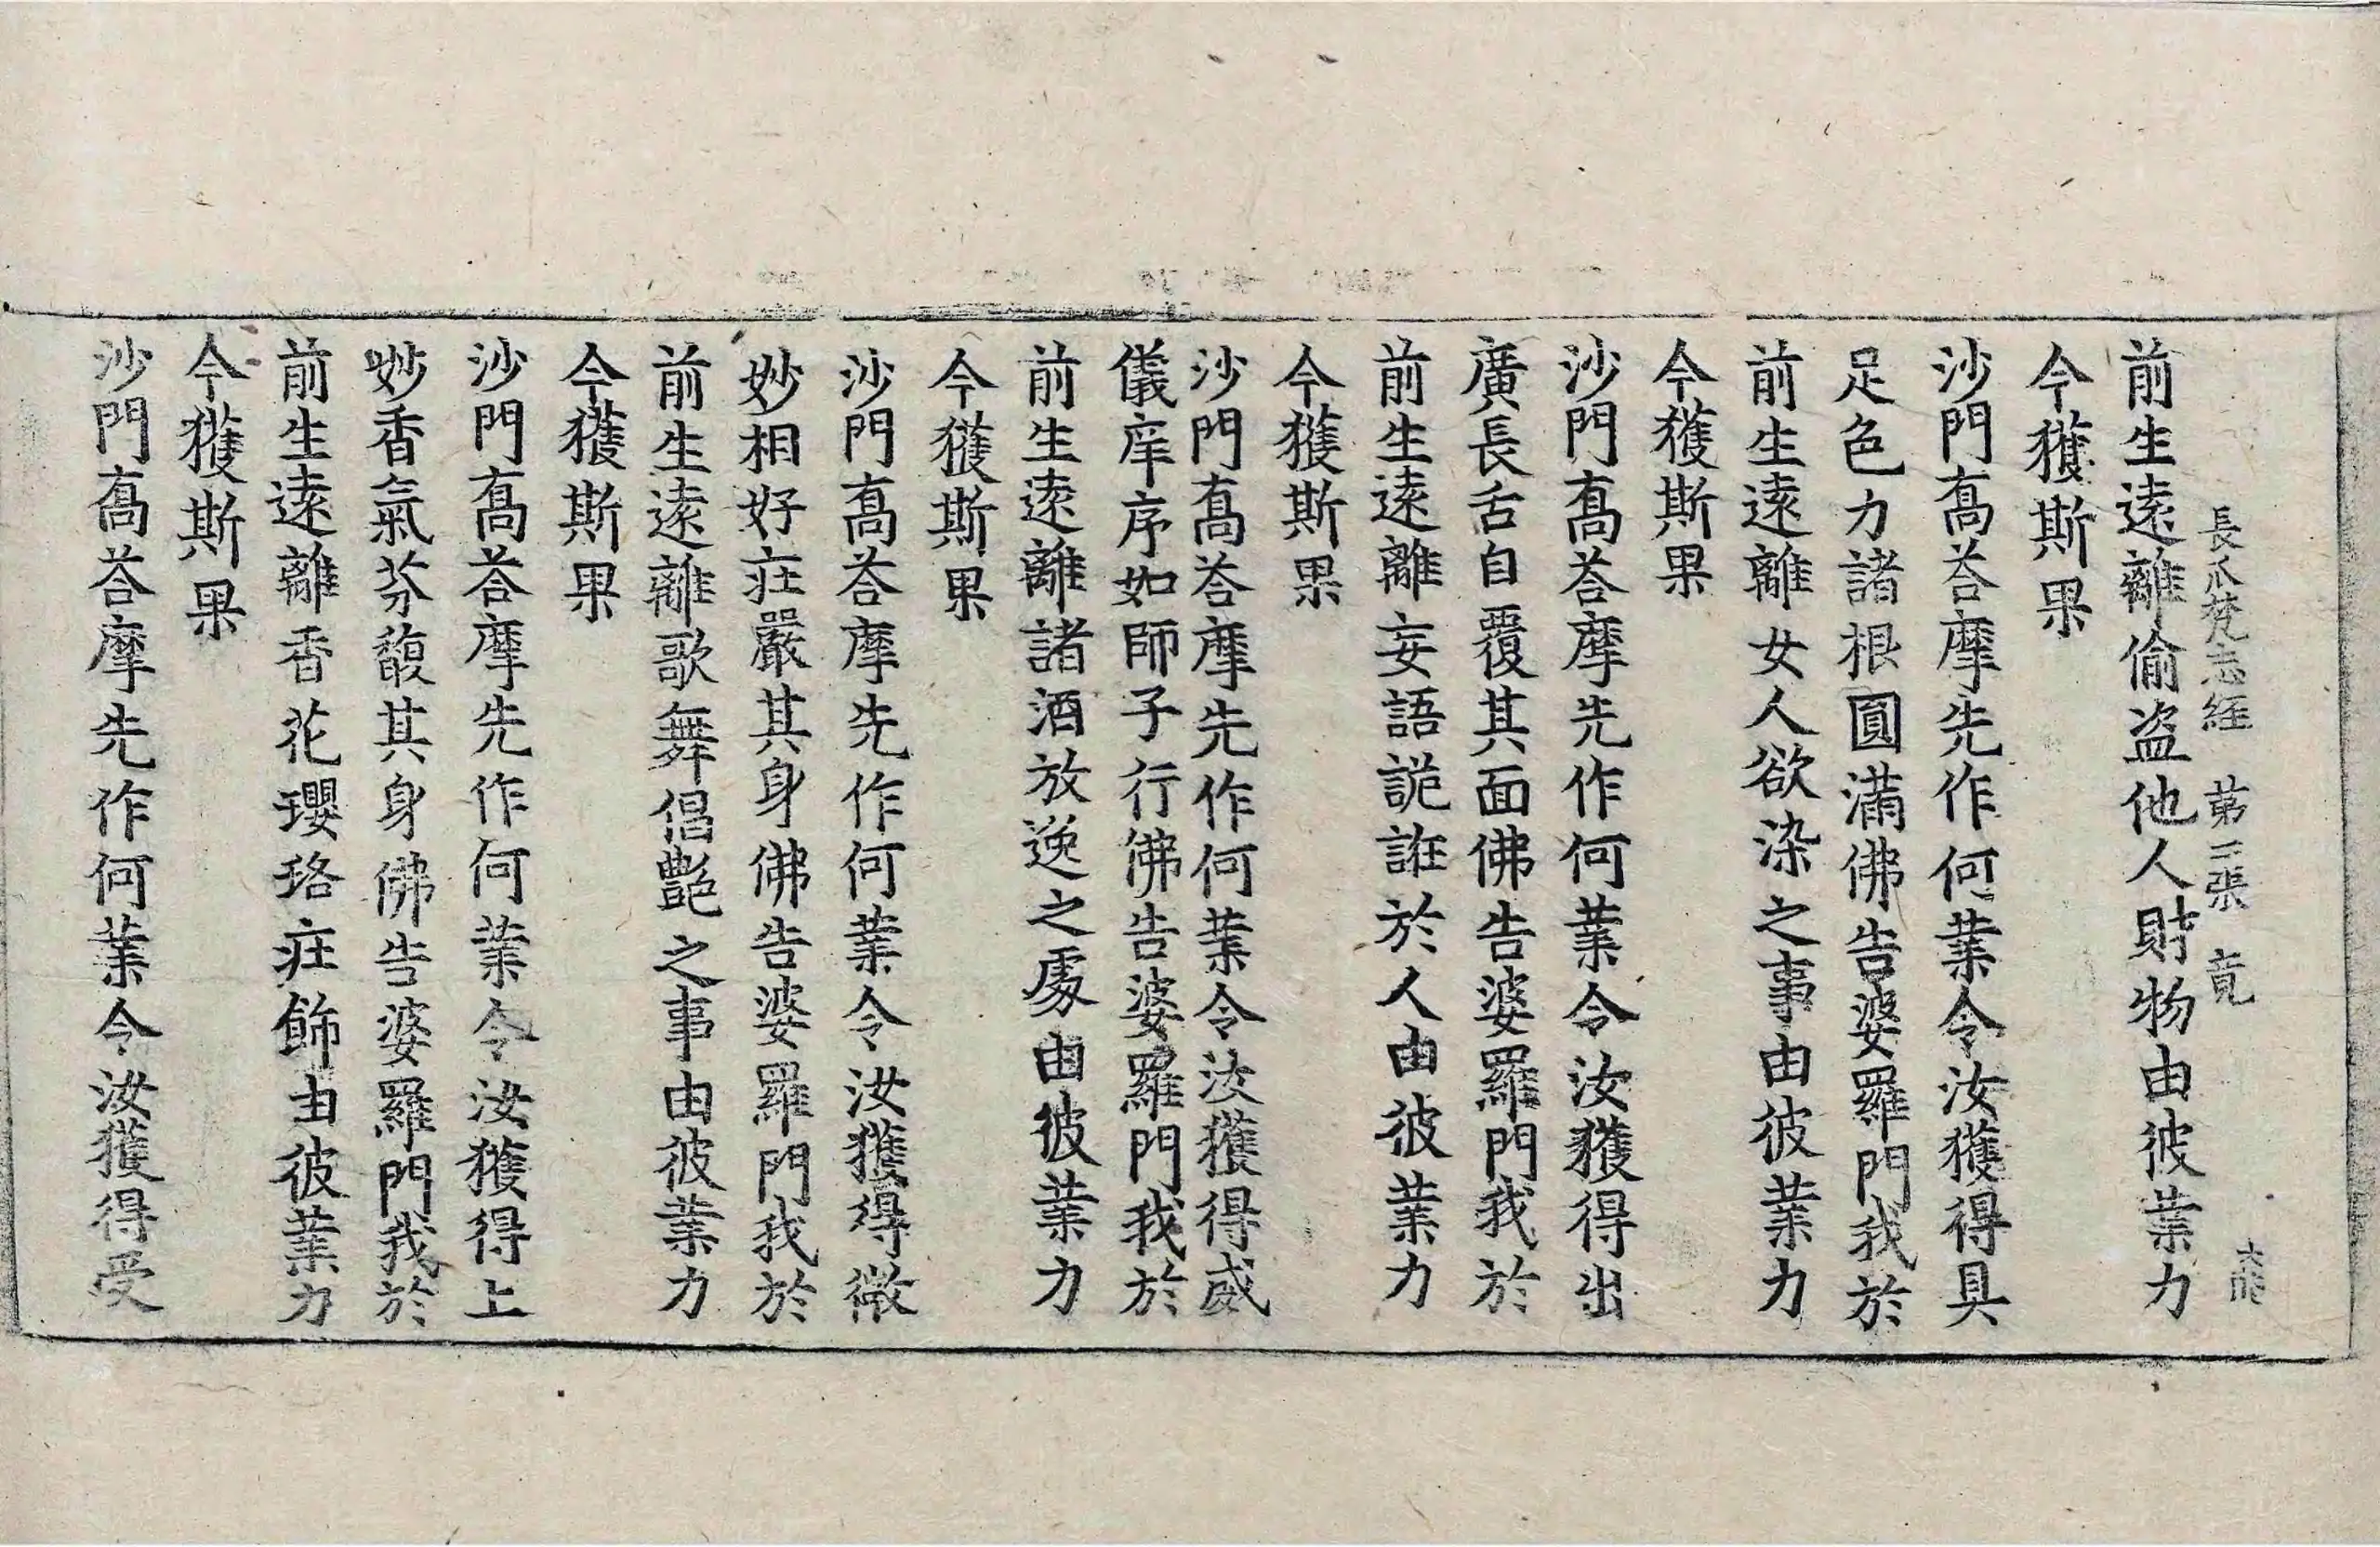 長爪梵志經　第二張　竟
前生遠離偷盗他人財物由彼業力
今獲斯果
沙門髙荅摩先作何業令汝獲得具
足色力諸根圓滿佛告婆羅門我於
前生遠離女人欲染之事由彼業力
今獲斯果
沙門髙荅摩先作何業令汝獲得出
廣長舌自覆其面佛告婆羅門我於
前生遠離妄語詭誑於人由彼業力
今獲斯果
沙門髙荅摩先作何業令汝獲得威
儀庠序如師子行佛告婆羅門我於
前生遠離諸酒放逸之處由彼業力
今獲斯果
沙門髙荅摩先作何業令汝獲得微
妙相好庄嚴其身佛告婆羅門我於
前生遠離歌舞倡艷之事由彼業力
今獲斯果
沙門髙荅摩先作何業令汝獲得上
妙香氣芬馥其身佛告婆羅門我於
前生遠離香花瓔珞庄飾由彼業力
今獲斯果
沙門髙荅摩先作何業令汝獲得受